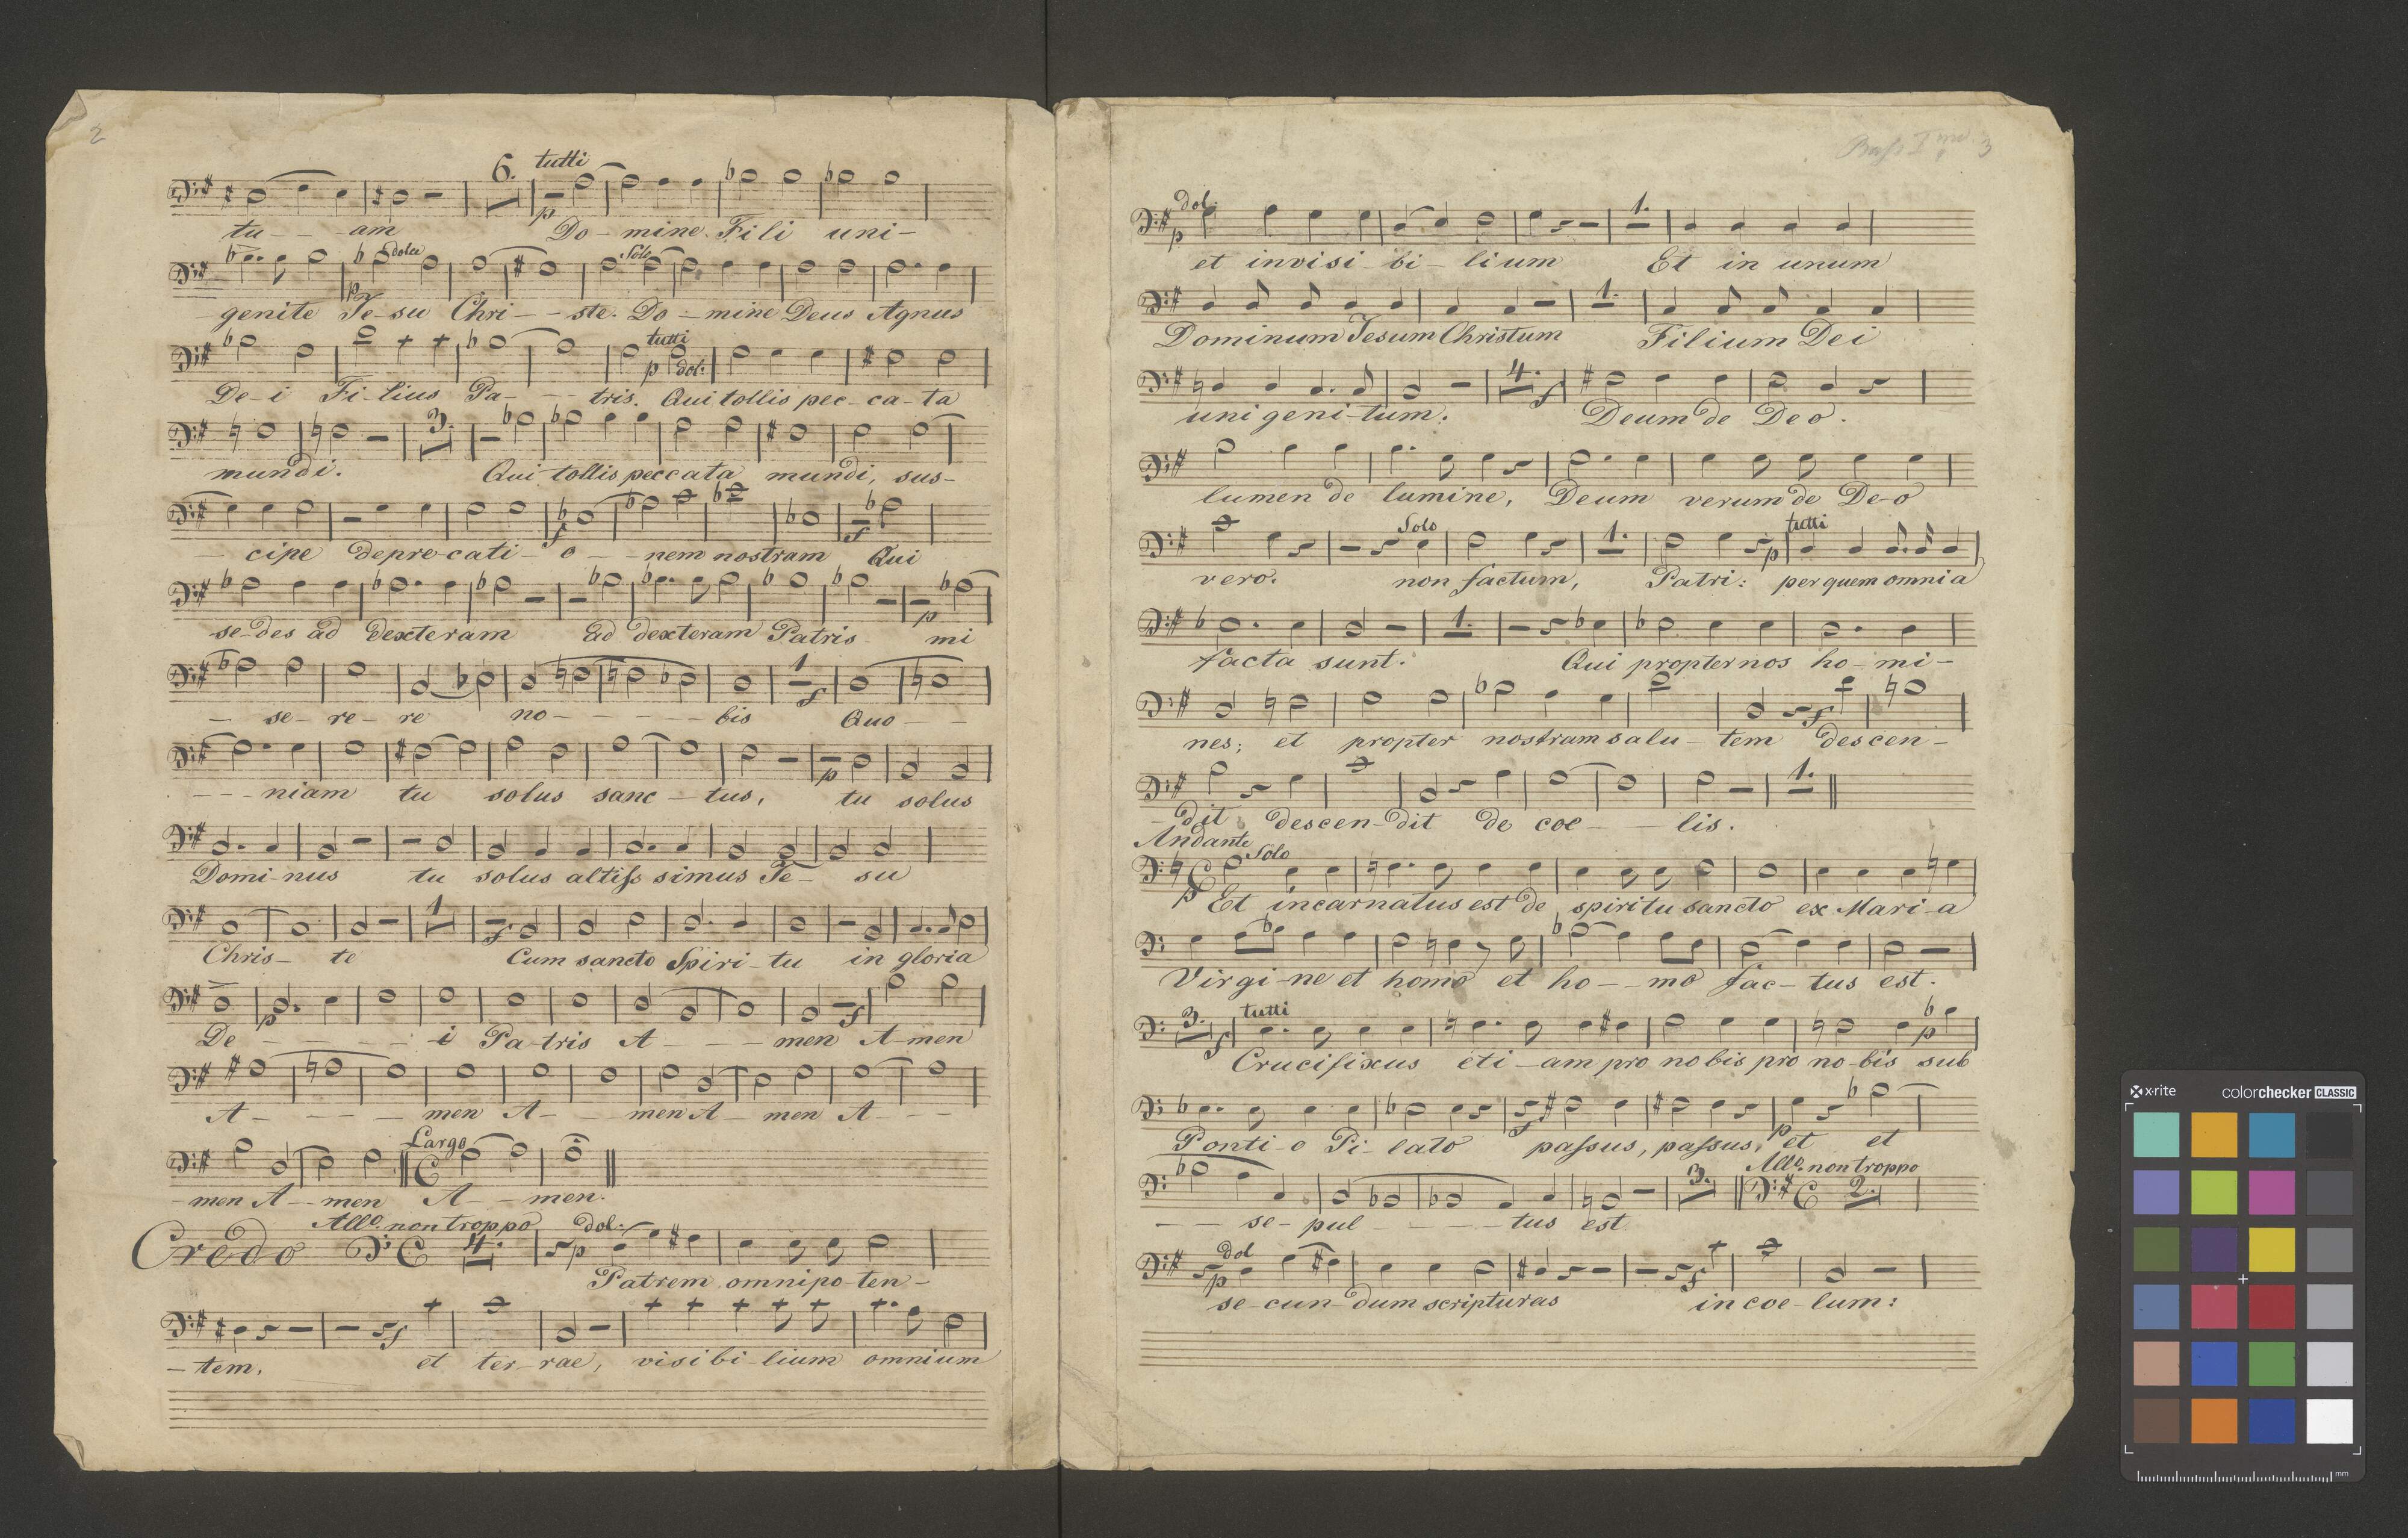 2
6. tutti
p
tu - - am Do - mine Fili uni-
dolce Solo
p
genite Je-su Chri - - ste. Do - mine Deus Agnus
tutti
p dol:
De-i Fi-lius Pa- - - tris. Qui tollis pec-ca-ta
3.
mundi. Qui tollis peccata mundi, sus-
f f
- cipe depre-cati - o - - nem nostram Qui
p
se-des ad dexteram ad dexteram Patris mi
1 f
- se- re- re no- - - - - bis Quo - -
p
- - - niam tu solus sanc - tus, tu solus
Domi-nus tu solus altiss simus Je- su
1 f.
Chris- te Cum sancto Spiri-tu in gloria
p f
De - - - - - i Pa-tris A - - - men A-men
A - - - - men A - - men A - men A - - -
Largo
- men A - men A - - men.
Allo. non troppo dol:
Credo 4. p
Patrem omnipo-ten-
f
- tem, et ter-rae, visibi-lium omnium
Bass Imo 3
dol:
p 1.
et invisi - bi - lium Et in unum
1.
Dominum Jesum Christum Filium Dei
4. f
unigeni-tum: Deum de Deo.
lumen de lumine, Deum verum de De-o
Solo 1. tutti
p
vero. non factum, Patri: per quem omnia
1.
facta sunt. Qui propter nos ho-mi-
f
nes; et propter nostram salu-tem descen-
1.
- dit descen-dit de coe - - lis.
Andante Solo
p
Et incarnatus est de spiritu sancto ex Mari-a
Virgi-ne et homo et ho - - mo fac - tus est.
3. tutti
f p
Crucifixus eti - am pro nobis pro no-bis sub
f p
Ponti-o Pi-lato passus, passus, et et
Allo. non troppo
3. 2.
- - se- pul - - - - tus est
dol
p f
se-cun-dum scripturas in coe-lum:
x·rite colorchecker CLASSIC
mm